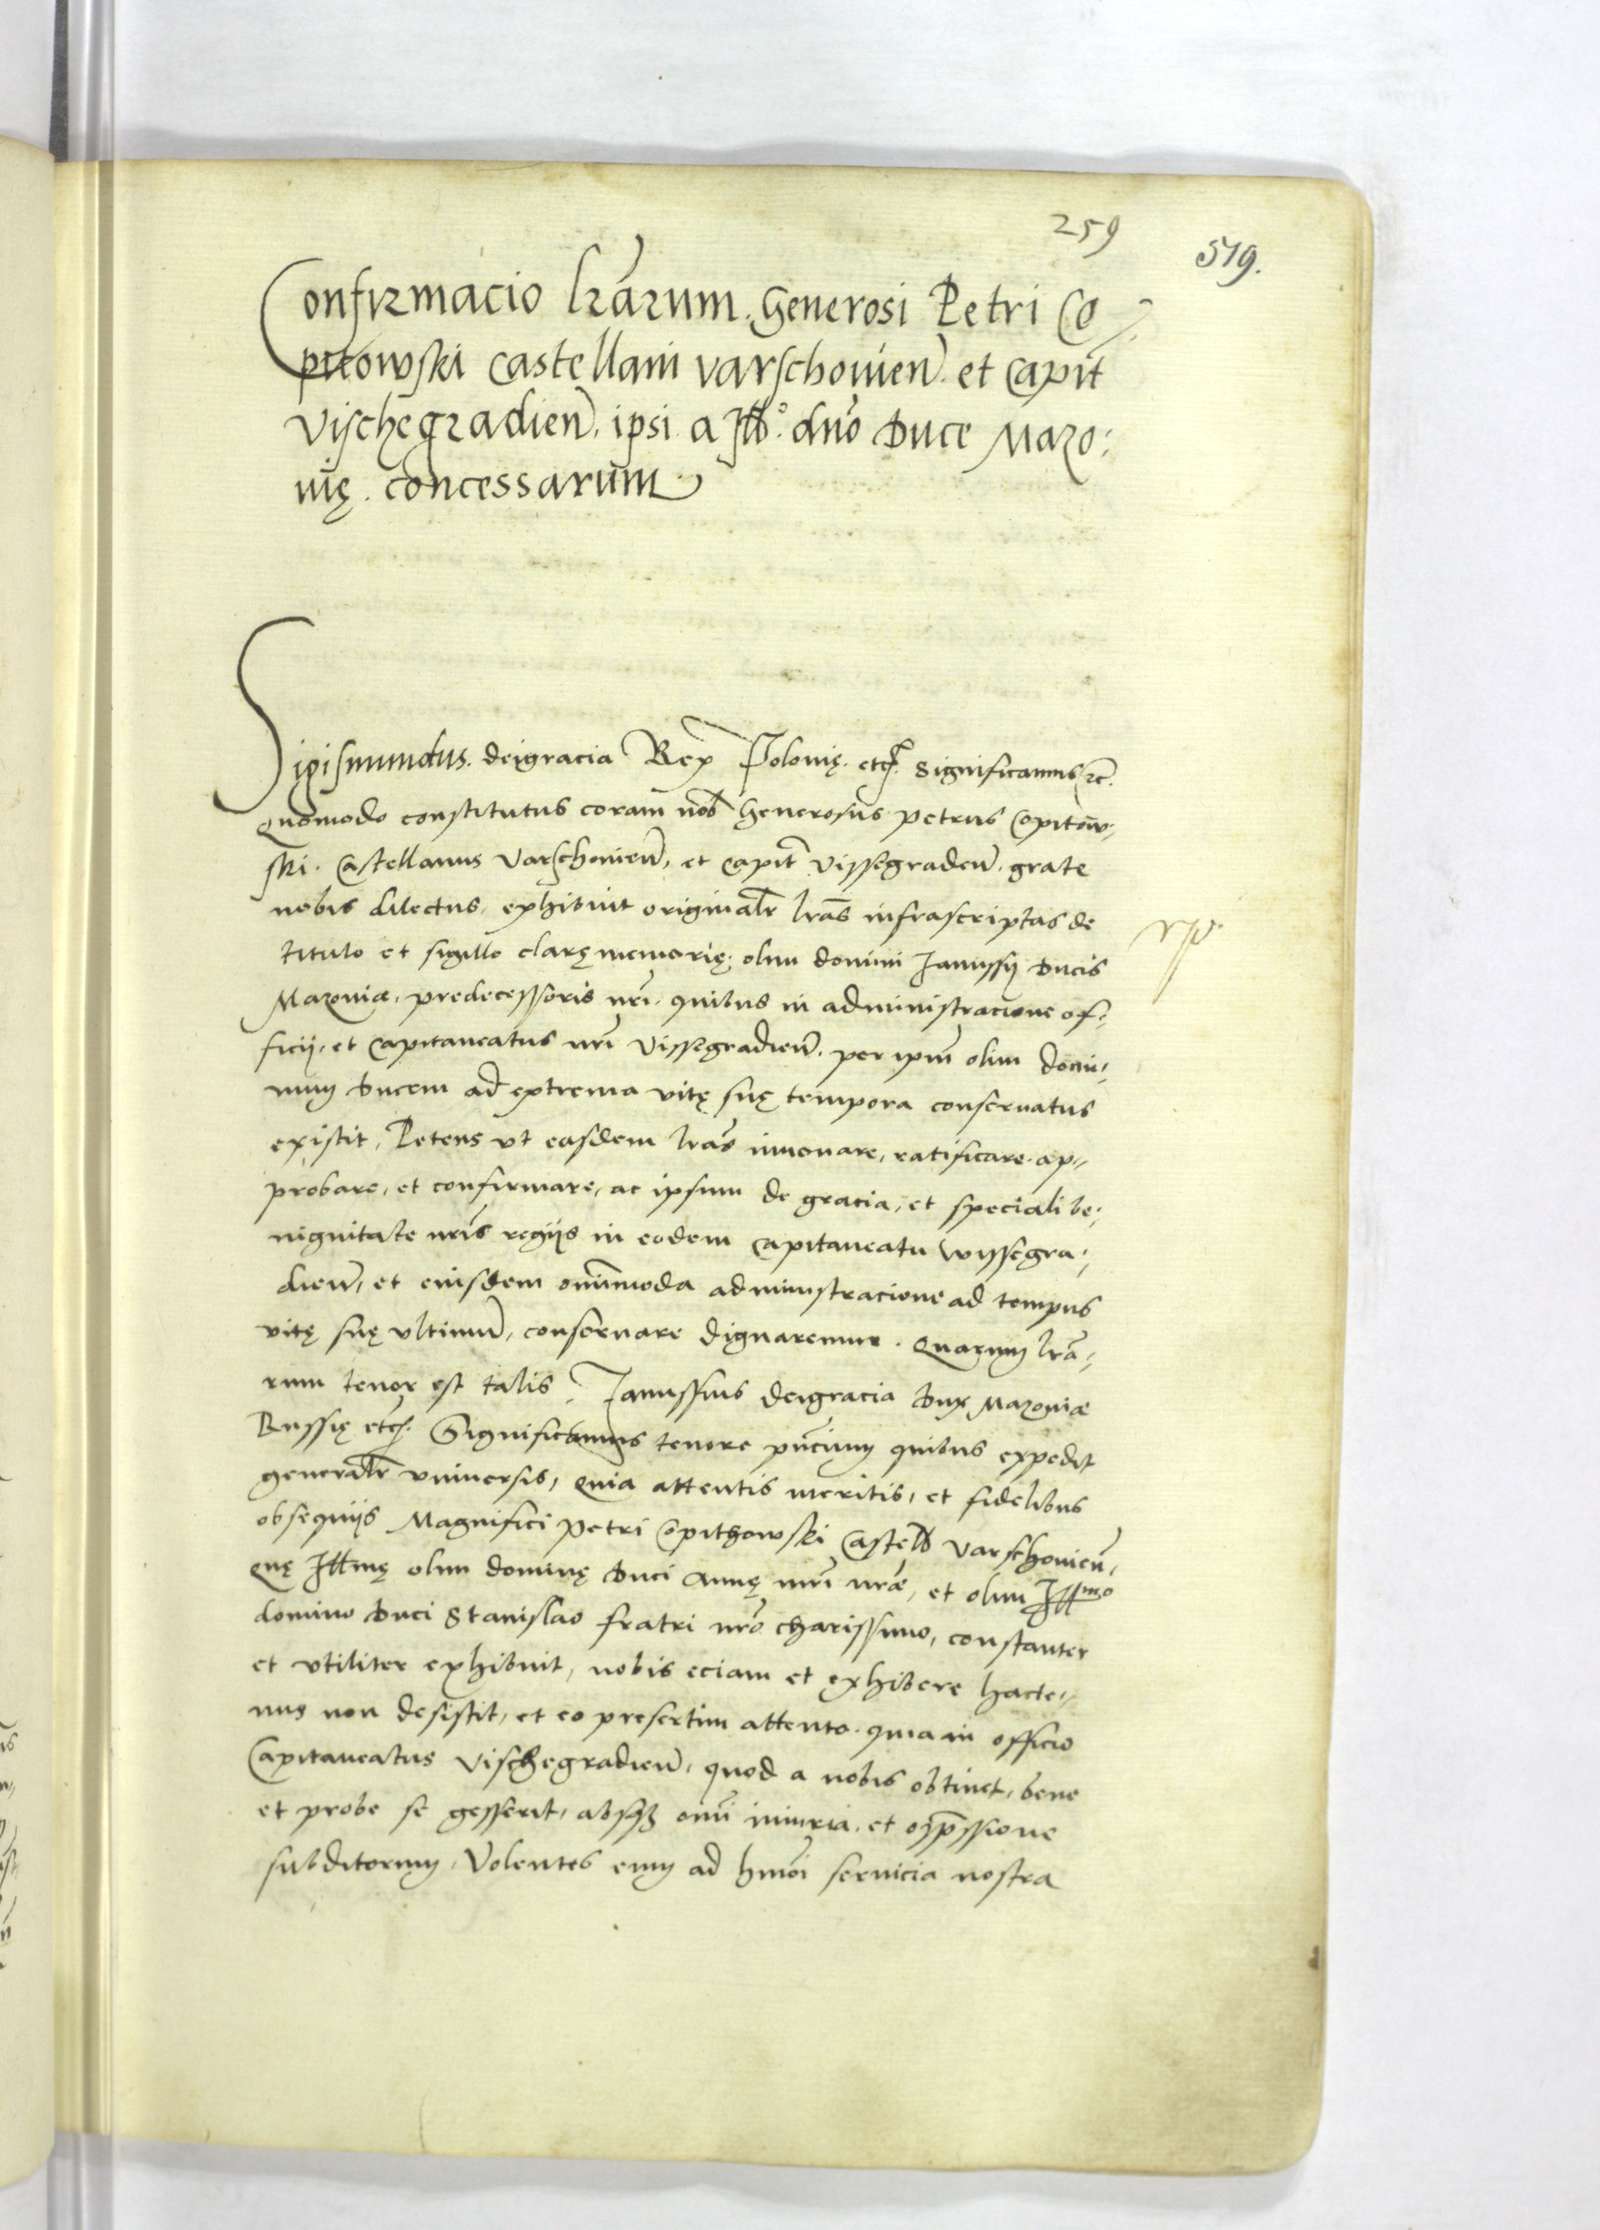 259
519.
Confirmacio lrarum. Generosi Petri Co
pitowski Castellani varschovien̄. et Capit̄
vischegradien̄. ipsi a Ill°. dno Duce Mazo:
uię. concessarum
Sigismundus. deigracia Rex Polonię. etc. Significamus etc.
Quomodo constitutus coram nob̄ Generosus Petrus Copitow:
ski. Castellanus Varschouien̄, et Capit̄ Vissegraden̄. grate
nobis dilectus, exhibuit originalr̄ lrās infrascriptas de
titulo et sigillo clarę memorię olim domini Janussij Ducis
Mazouiæ, predecessoris nrī. quibus in administracione of:
ficij, et Capitaneatus nrī Vissegradien̄. per ipm̄ olim domi:
num Ducem ad extrema vitę suę tempora conseruatus
existit, Petens vt easdem lrās innouare, ratificare. ap:
probare, et confirmare, ac ipsum de gracia, et speciali be:
nignitate nrīs regijs in eodem Capitaneatu Wyssegra:
dien̄, et eiusdem omīmoda administracione ad tempus
vitę suę vltimum̄, conseruare dignaremur. Quarum lrā:
rum tenor est talis. Janussius deigracia Dux Mazouiæ
Russię etc. Significamus tenore pn̄cium quibus expedit
generalr̄ vniuersis, Quia attentis meritis, et fidelibus
obsequijs Magnifici Petri Copithowski Castell̄ Varschouien̄,
Quę Illmę olim dominę Duci Annę mrī nrǣ, et olim Illmo
domino Duci Stanislao fratri nrō charissimo, constanter
et vtiliter exhibuit, nobis eciam et exhibere hacte:
nus non desistit, et eo presertim attento. quia in officio
Capitaneatus Vischegradien̄, quod a nobis obtinet, bene
et probe se gesserit, absqꝫ omī iniuria, et opp̄ssione
subditorum, Volentes eum ad hmōi seruicia nostra